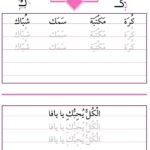 كـ ك
كُرَة مَكْتَبَة سَمَك شُبّاك
كُرَة مَكْتَبَة سَمَك شُبّاك
كُرَة مَكْتَبَة سَمَك شُبّاك
الْكُلُّ يُحِبُّكِ يا يافا
الْكُلُّ يُحِبُّكِ يا يافا